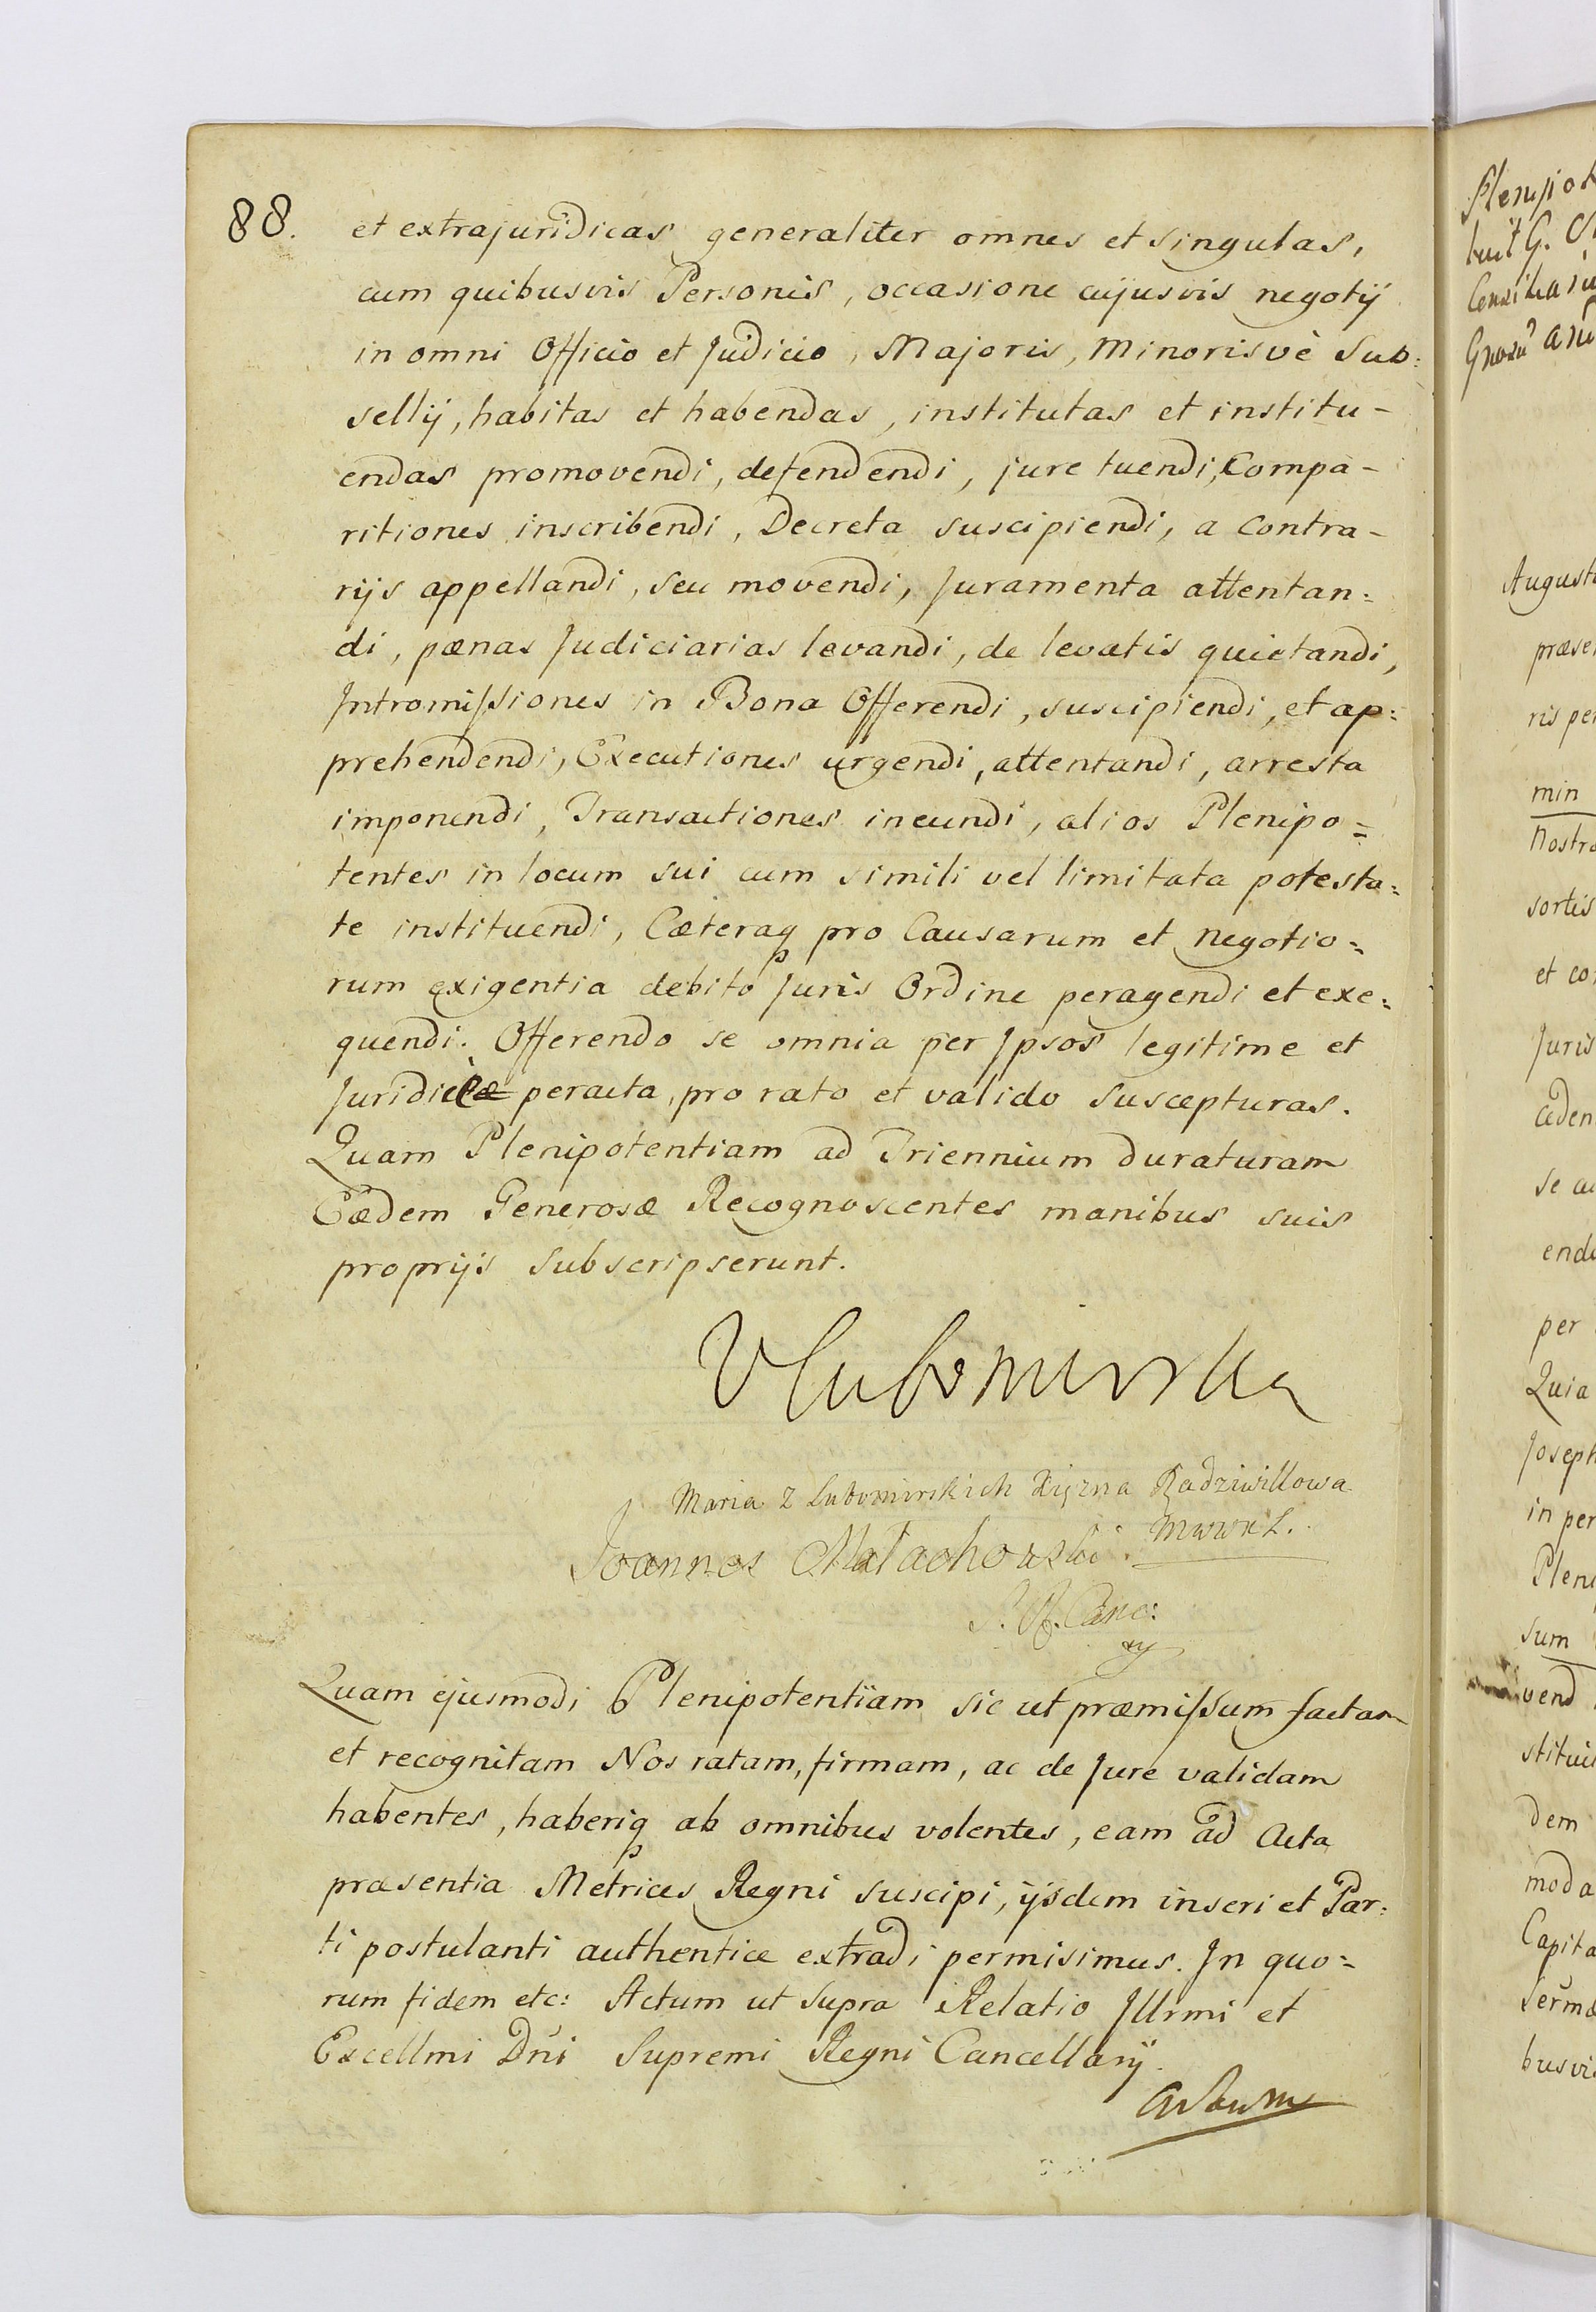 88.
et extrajuridicas generaliter omnes et singulas,
cum quibusvis Personis, occasione cujusvis negotij
in omni Officio et Judicio, Majoris, Minorisvè Sub:
sellij, habitas et habendas, institutas et institu-
endas promovendi, defendendi, jure tuendi, Compa-
ritiones inscribendi, Decreta suscipiendi, a Contra-
rijs appellandi, seu movendi, Juramenta attentan:
di, pænas Judiciarias levandi, de levatis quietandi,
Intromissiones in Bona Offerendi, suscipiendi, et ap:
prehendendi, Executiones urgendi, attentandi, arresta
imponendi, Transactiones ineundi, alios Plenipo=
tentes in locum sui cum simili vel limitata potesta:
te instituendi, Cæteraq pro Causarum et negotio=
rum exigentia debito Juris Ordine peragendi et exe:
quendi. Offerendo se omnia per Ipsos legitime et
Juridicè peracta, pro rato et valido suscepturas.
Quam Plenipotentiam ad Triennium duraturam
Eædem Generosæ Recognoscentes manibus suis
proprijs subscripserunt.
VLubomirska
Maria z Lubomirskich Xiężna Radziwiłłowa
MWWXL.
Joannes Małachowski
S. R. Canc:
Quam ejusmodi Plenipotentiam sic ut præmissum factam
et recognitam Nos ratam, firmam, ac de Jure validam
habentes, haberiq ab omnibus volentes, eam ad Acta
præsentia Metrices Regni suscipi, ijsdem inseri et Par:
ti postulanti authentice extradi permisimus. In quo=
rum fidem etc: Actum ut supra Relatio Illrmi et
Excellmi Dñi Supremi Regni Cancellarij.
Plenipot
tuit G.
Consiliariu
August
præse
ris per
min
Nostra
sortis
et co
Juris
ceden
se
ende
per
Quia
Joseph
in per
Pleni
sum
vend
stitui
dem
moda
Capita
busvi